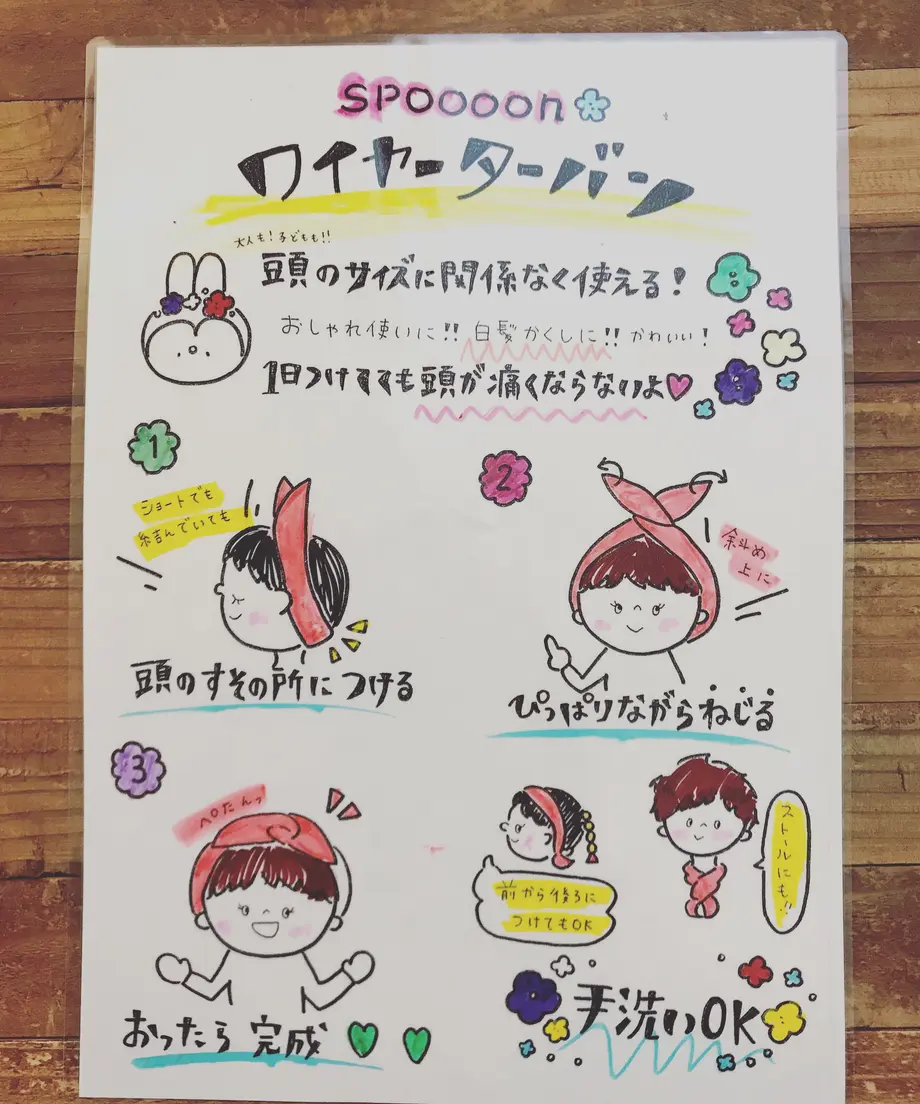 SPOOOON
ワイヤーターバン
大人も!子どもも!!
頭のサイズに関係なく使える!
おしゃれ使いに!!白髪かくしに!!かわいい!
1日つけてても頭が痛くならないよ
1
ショートでも
結んでいても
頭のすその所につける
2
斜め
上に
ぴっぱりながらねじる
3
ペたんっ
おったら完成
前から後ろに
つけてもOK
ストールにも!!
手洗いOK